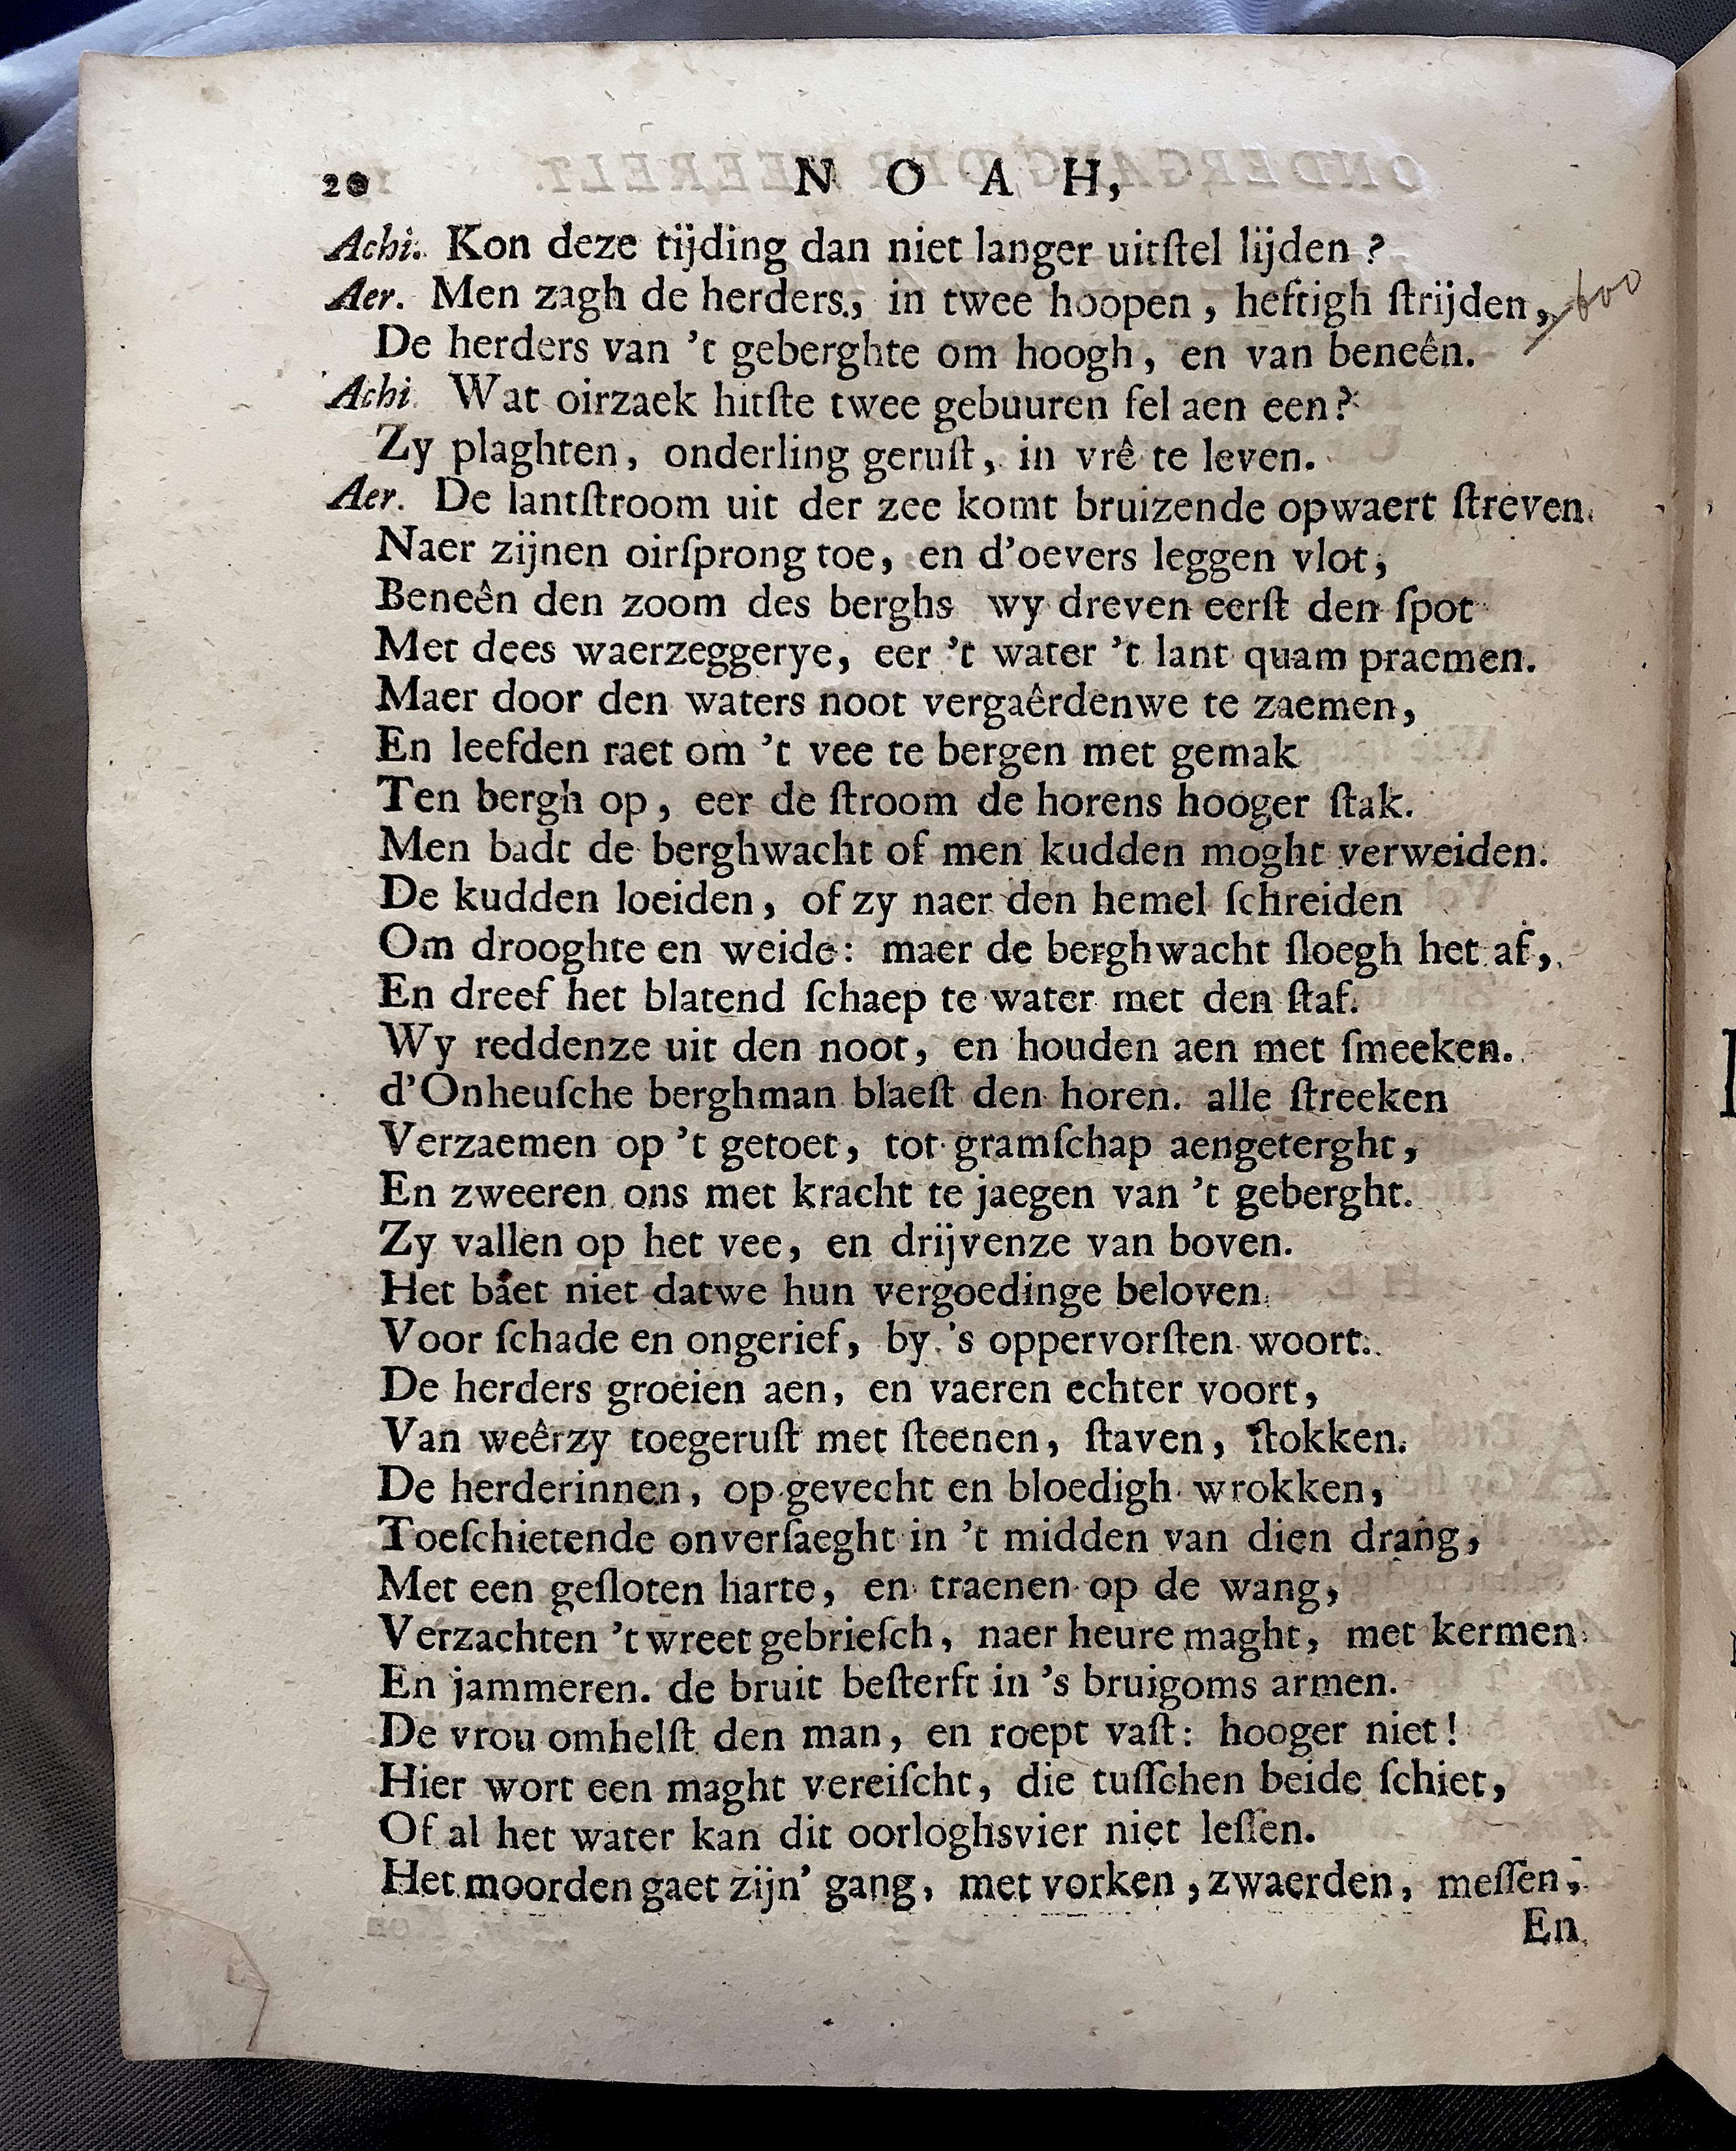 20 N O A H,
Achi. Kon deze tijding dan niet langer uitſtel lijden ?
Aer. Men zagh de herders, in twee hoopen, heftigh ſtrijden, 600
De herders van 't geberghte om hoogh, en van beneên.
Achi. Wat oirzaek hitſte twee gebuuren fel aen een?
Zy plaghten, onderling geruſt, in vrê te leven.
Aer. De lantſtroom uit der zee komt bruizende opwaert ſtreven
Naer zijnen oirſprong toe, en d'oevers leggen vlot,
Beneên den zoom des berghs wy dreven eerſt den ſpot
Met dees waerzeggerye, eer 't water 't lant quam praemen.
Maer door den waters noot vergaêrdenwe te zaemen,
En leefden raet om 't vee te bergen met gemak
Ten bergh op, eer de ſtroom de horens hooger ſtak.
Men badt de berghwacht of men kudden moght verweiden.
De kudden loeiden, of zy naer den hemel ſchreiden
Om drooghte en weide: maer de berghwacht ſloegh het af,
En dreef het blatend ſchaep te water met den ſtaf.
Wy reddenze uit den noot, en houden aen met ſmeeken.
d'Onheuſche berghman blaeſt den horen. alle ſtreeken
Verzaemen op 't getoet, tot gramſchap aengeterght,
En zweeren ons met kracht te jaegen van 't geberght.
Zy vallen op het vee, en drijvenze van boven.
Het baet niet datwe hun vergoedinge beloven
Voor ſchade en ongerief, by 's oppervorſten woort.
De herders groeien aen, en vaeren echter voort,
Van weêrzy toegeruſt met ſteenen, ſtaven, ſtokken.
De herderinnen, op gevecht en bloedigh wrokken,
Toeſchietende onverſaeght in 't midden van dien drang,
Met een geſloten harte, en traenen op de wang,
Verzachten 't wreet gebrieſch, naer heure maght, met kermen
En jammeren. de bruit beſterft in 's bruigoms armen.
De vrou omhelſt den man, en roept vaſt: hooger niet!
Hier wort een maght vereiſcht, die tuſſchen beide ſchiet,
Of al het water kan dit oorloghsvier niet leſſen.
Het moorden gaet zijn' gang, met vorken, zwaerden, meſſen,
En